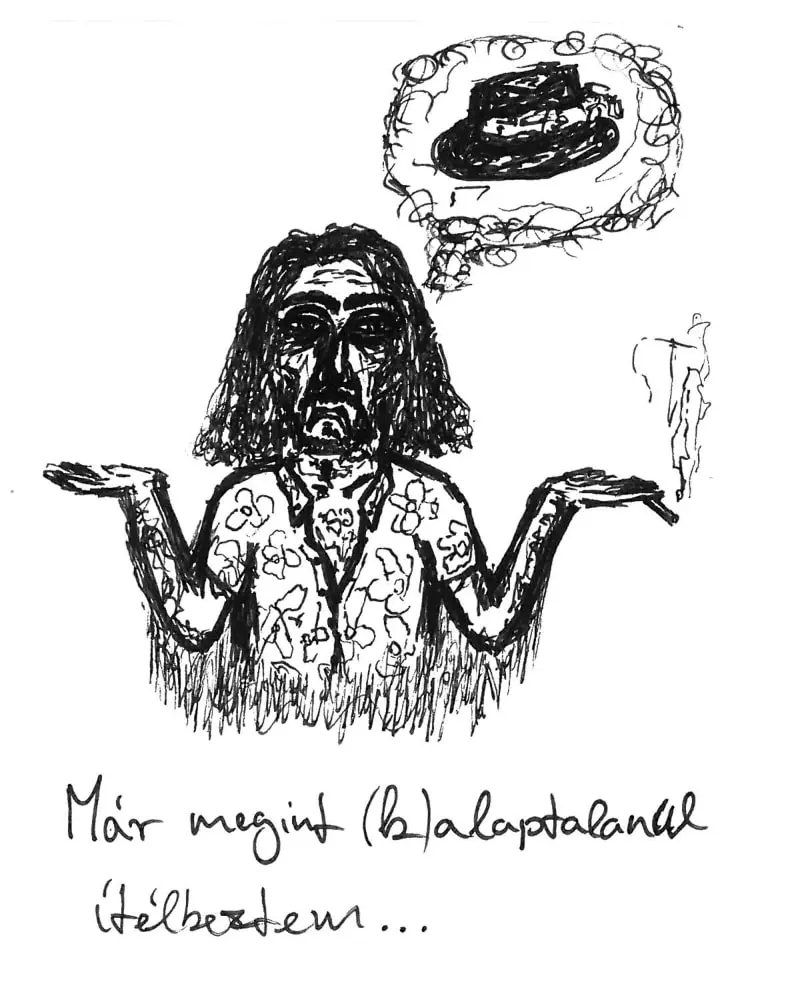 Már megint (k)alaptalanul
ítélkeztem...